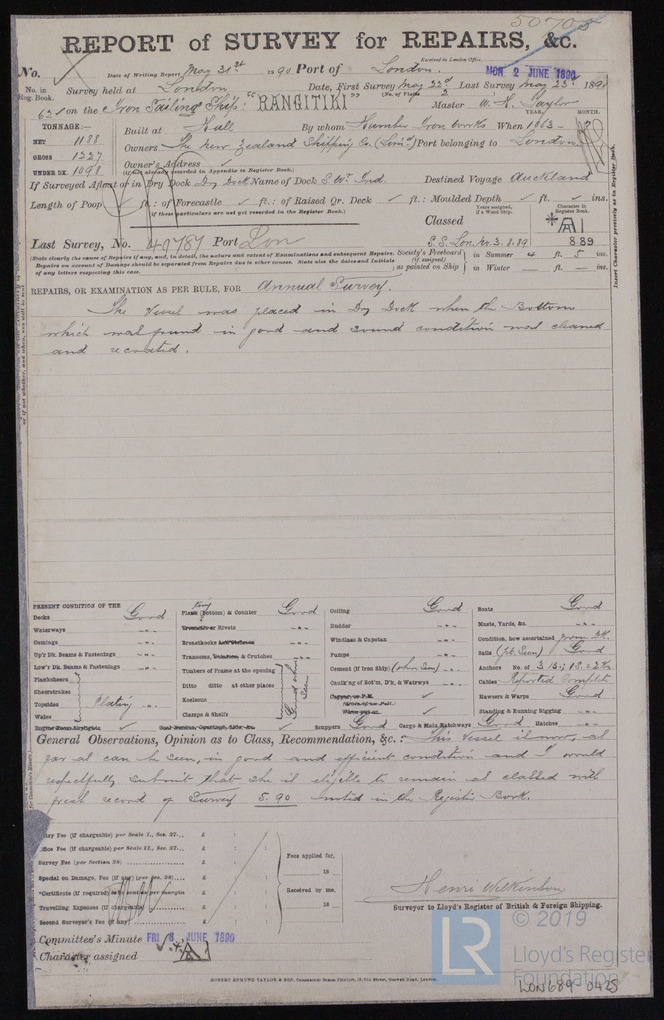 50705
REPORT of SURVEY for REPAIRS, &c.
Received in London Office
No. Date of Writing Report May 31st 1890 Port of London. MON. 2 JUNE 1890
No. in Reg. Book. Survey held at London Date, First Survey May 22nd Last Survey May 23rd 1890
(No. of Visits 2
621 on the Iron Sailing Ship: "RANGITIKI" Master W. H. Taylor
TONNAGE:— YEAR. MONTH.
Built at Hull By whom Humber Iron Works When 1863 -
NET 1188
GROSS 1227
UNDER DK. 1098
Owners The New Zealand Shipping Co. (Limd) Port belonging to London
Owner's Address
(if not already recorded in Appendix to Register Book.)
If Surveyed Afloat or in Dry Dock Dry Dock Name of Dock S. W. Ind. Destined Voyage Auckland
Length of Poop ft.: of Forecastle ft.: of Raised Qr. Deck ft.: Moulded Depth ft. ins.
(if these particulars are not yet recorded in the Register Book.)
Years assigned, if a Wood Ship. Character in Register Book.
Classed A1
Last Survey, No. 49787 Port Lon S.S. Lon. No. 3. 8.89 8.89
(State clearly the cause of Repairs if any, and, in detail, the nature and extent of Examinations and subsequent Repairs.
Repairs on account of Damage should be separated from Repairs due to other causes. State also the dates and Initials
of any letters respecting this case.
Society's Freeboard (if assigned) as painted on Ship } in Summer 4 ft. 5 ins.
in Winter — ft. — ins.
REPAIRS, OR EXAMINATION AS PER RULE, FOR Annual Survey.
The Vessel was placed in Dry Dock when the Bottom
which was found in good and sound condition was cleaned
and recoated.
PRESENT CONDITION OF THE
Decks Good
Waterways -"-
Comings -"-
Up'r Dk. Beams & Fastenings -"-
Low'r Dk. Beams & Fastenings -"-
Planksheers
Sheerstrakes
Topsides Plating
Wales
Engine Room Skylights
Plank (Bottom) & Counter Good
Treenails or Rivets -"-
Breasthooks -"-
Transoms, & Crutches -"-
Timbers of Frame at the opening
Ditto ditto at other places
Keelsons
Clamps & Shelfs
Good where seen
Ceiling Good
Rudder -"-
Windlass & Capstan -"-
Pumps -"-
Cement (if Iron Ship) (where Seen) -"-
Caulk'ng of Bot'm, D'k, & Watrways -"-
Scuppers Good Cargo & Main Hatchways Good Hatches -"-
Boats Good
Masts, Yards, &c. -"-
Condition, how ascertained from Dk.
Sails Good
Anchors No. of 3 B.; 1 S.; 2 K.
Cables Reported Complete
Hawsers & Warps Good
Standing & Running Rigging -"-
General Observations, Opinion as to Class, Recommendation, &c.:— This Vessel is now, as
far as can be seen, in good and efficient condition and I would
respectfully submit that she is eligible to remain as classed with
fresh record of Survey 5.90 noted in the Register Book.
Entry Fee (if chargeable) per Scale I., Sec. 27... £ : :
Office Fee (if chargeable) per Scale II., Sec. 27... £ : :
Survey Fee (per Section 28) £ : :
Special on Damage, Fee (if any) (per Sec. 28) £ : :
*Certificate (if required) to be sent as per margin £ : :
Travelling Expenses (if chargeable) £ : :
Second Surveyor's Fee (if any) £ : :
Fees applied for,
18
Received by me,
18
Henri Wilkinson
Surveyor to Lloyd's Register of British & Foreign Shipping.
Committee's Minute FRI 6 JUNE 1890
Character assigned A1
ROBERT EDMUND TAYLOR & SON,
LR
© 2019
Lloyd's Register
Foundation
LON689-0425